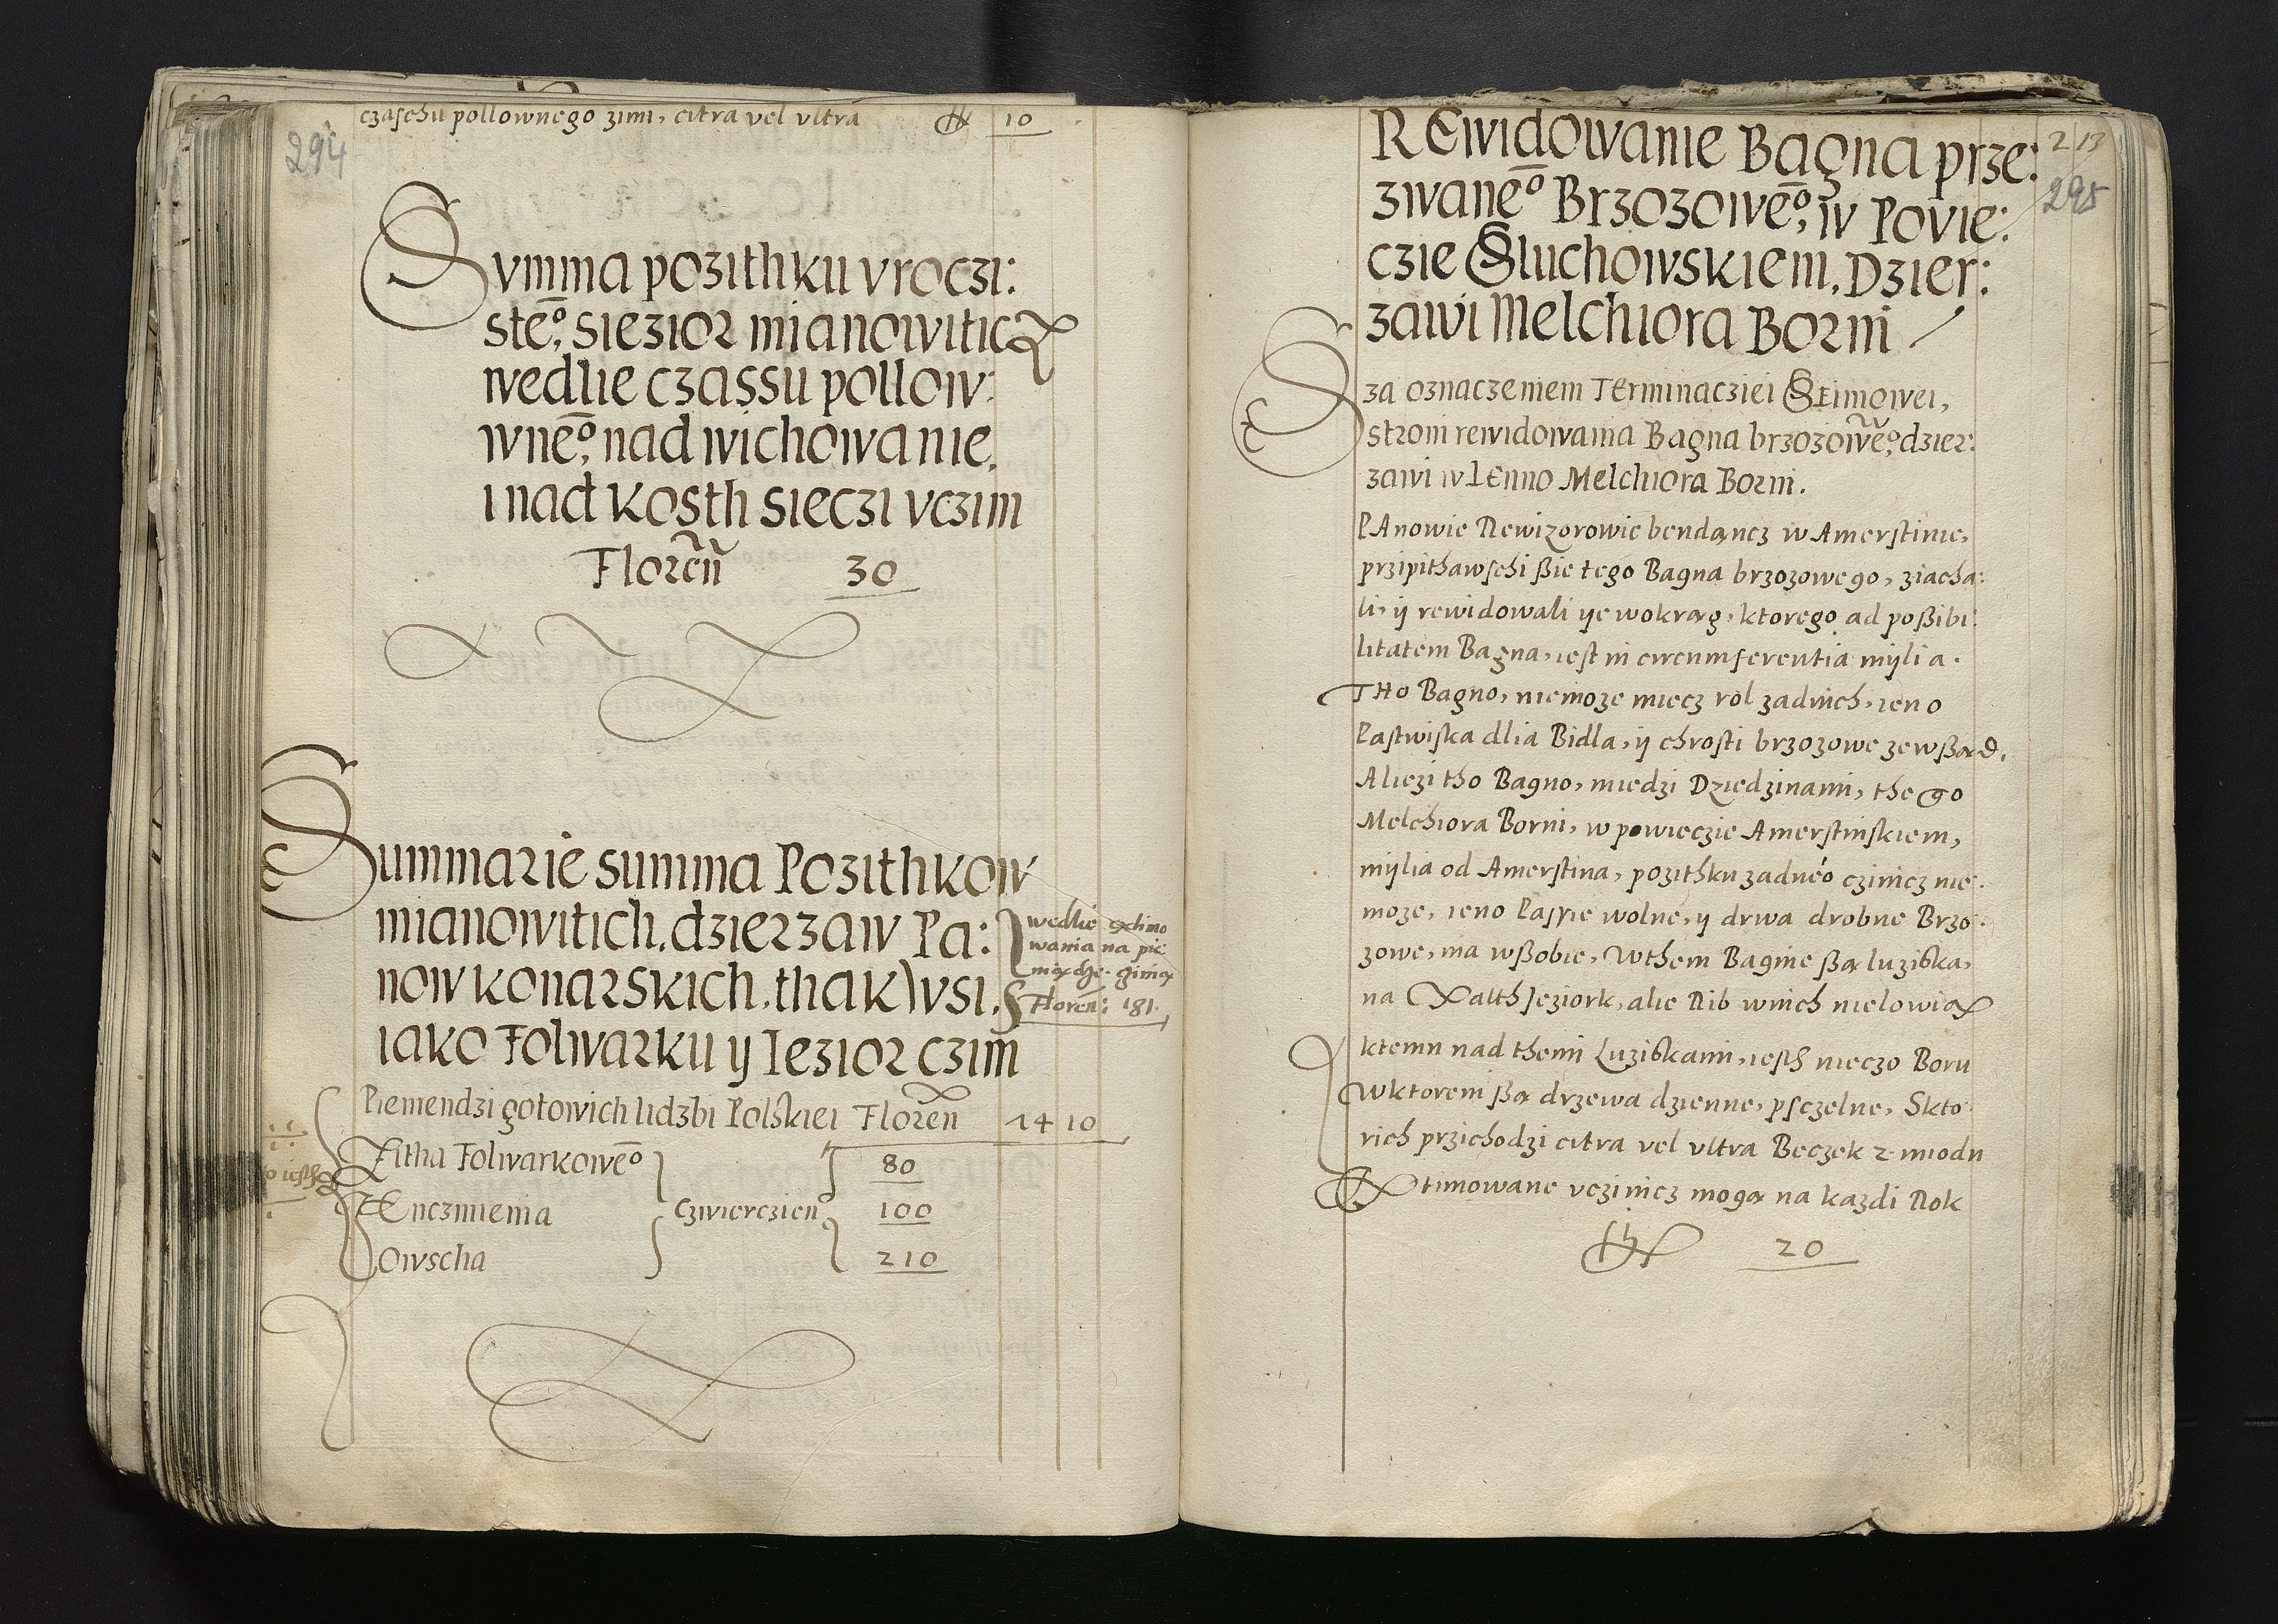 294
czaschu pollownego zimi, citra vel vltra ff 10
Summa pozithku vroczi:
ste͞o, siezior mianowitich
wedlie czassu pollow:
wne͞o, nad wichowanie,
i nad kosth sieczi vczini
Floren 30
Summarie summa Pozithkow
mianowitich, dzierzaw Pa:
now konarskich, thak wsi,
iako Folwarku ÿ Iezior czini
wedlie
wania na pie:
Floren: 181.
Pieniendzi gotowich lidzbi Polskiei Floren 1410
Zitha Folwarkowe͞o 80
Ienczmienia czwierczien 100
Owscha 210
213
295
REwidowanie Bagna prze:
zwane͞o Brzozowe͞o, w Powie:
czie Sluchowskiem, Dzier:
zawi Melchiora Borni
Za oznaczeniem Terminacziei Seimowei,
stroni rewidowania Bagna brzozowe͞o, dzier:
zawi w lenno Melchiora Borni.
PAnowie Rewizorowie bendąncz w Amerstinie,
przipithawschi ßie tego Bagna brzozowego, ziacha:
li, ÿ rewidowali ÿe wokrąg, ktorego ad poßibi:
litatem Bagna, iest in circumferentia mÿlia.
THo Bagno, niemoze miecz rol zadnich, ieno
Pastwiska dlia Bidla, ÿ chrosti brzozowe zewßąd,
A liezi tho Bagno, miedzi Dziedzinami, thego
Melchiora Borni, w powieczie Amerstinskiem,
mÿlia od Amerstina, pozithku zadne͞o czinicz nie:
moze, ieno Passie wolne, ÿ drwa drobne Brzo:
zowe, ma wßobie, Wthem Bagnie ßą luziska,
na Xałth Jeziork, alie Rib wnich nielowią
ktemu nad themi Luziskami, iesth nieczo Boru
Wktorem ßą drzewa dzienne, psczelne, Skto:
rich przichodzi citra vel vltra Beczek 2 miodu
Extimowane vczinicz mogą na kazdi Rok
ff 20